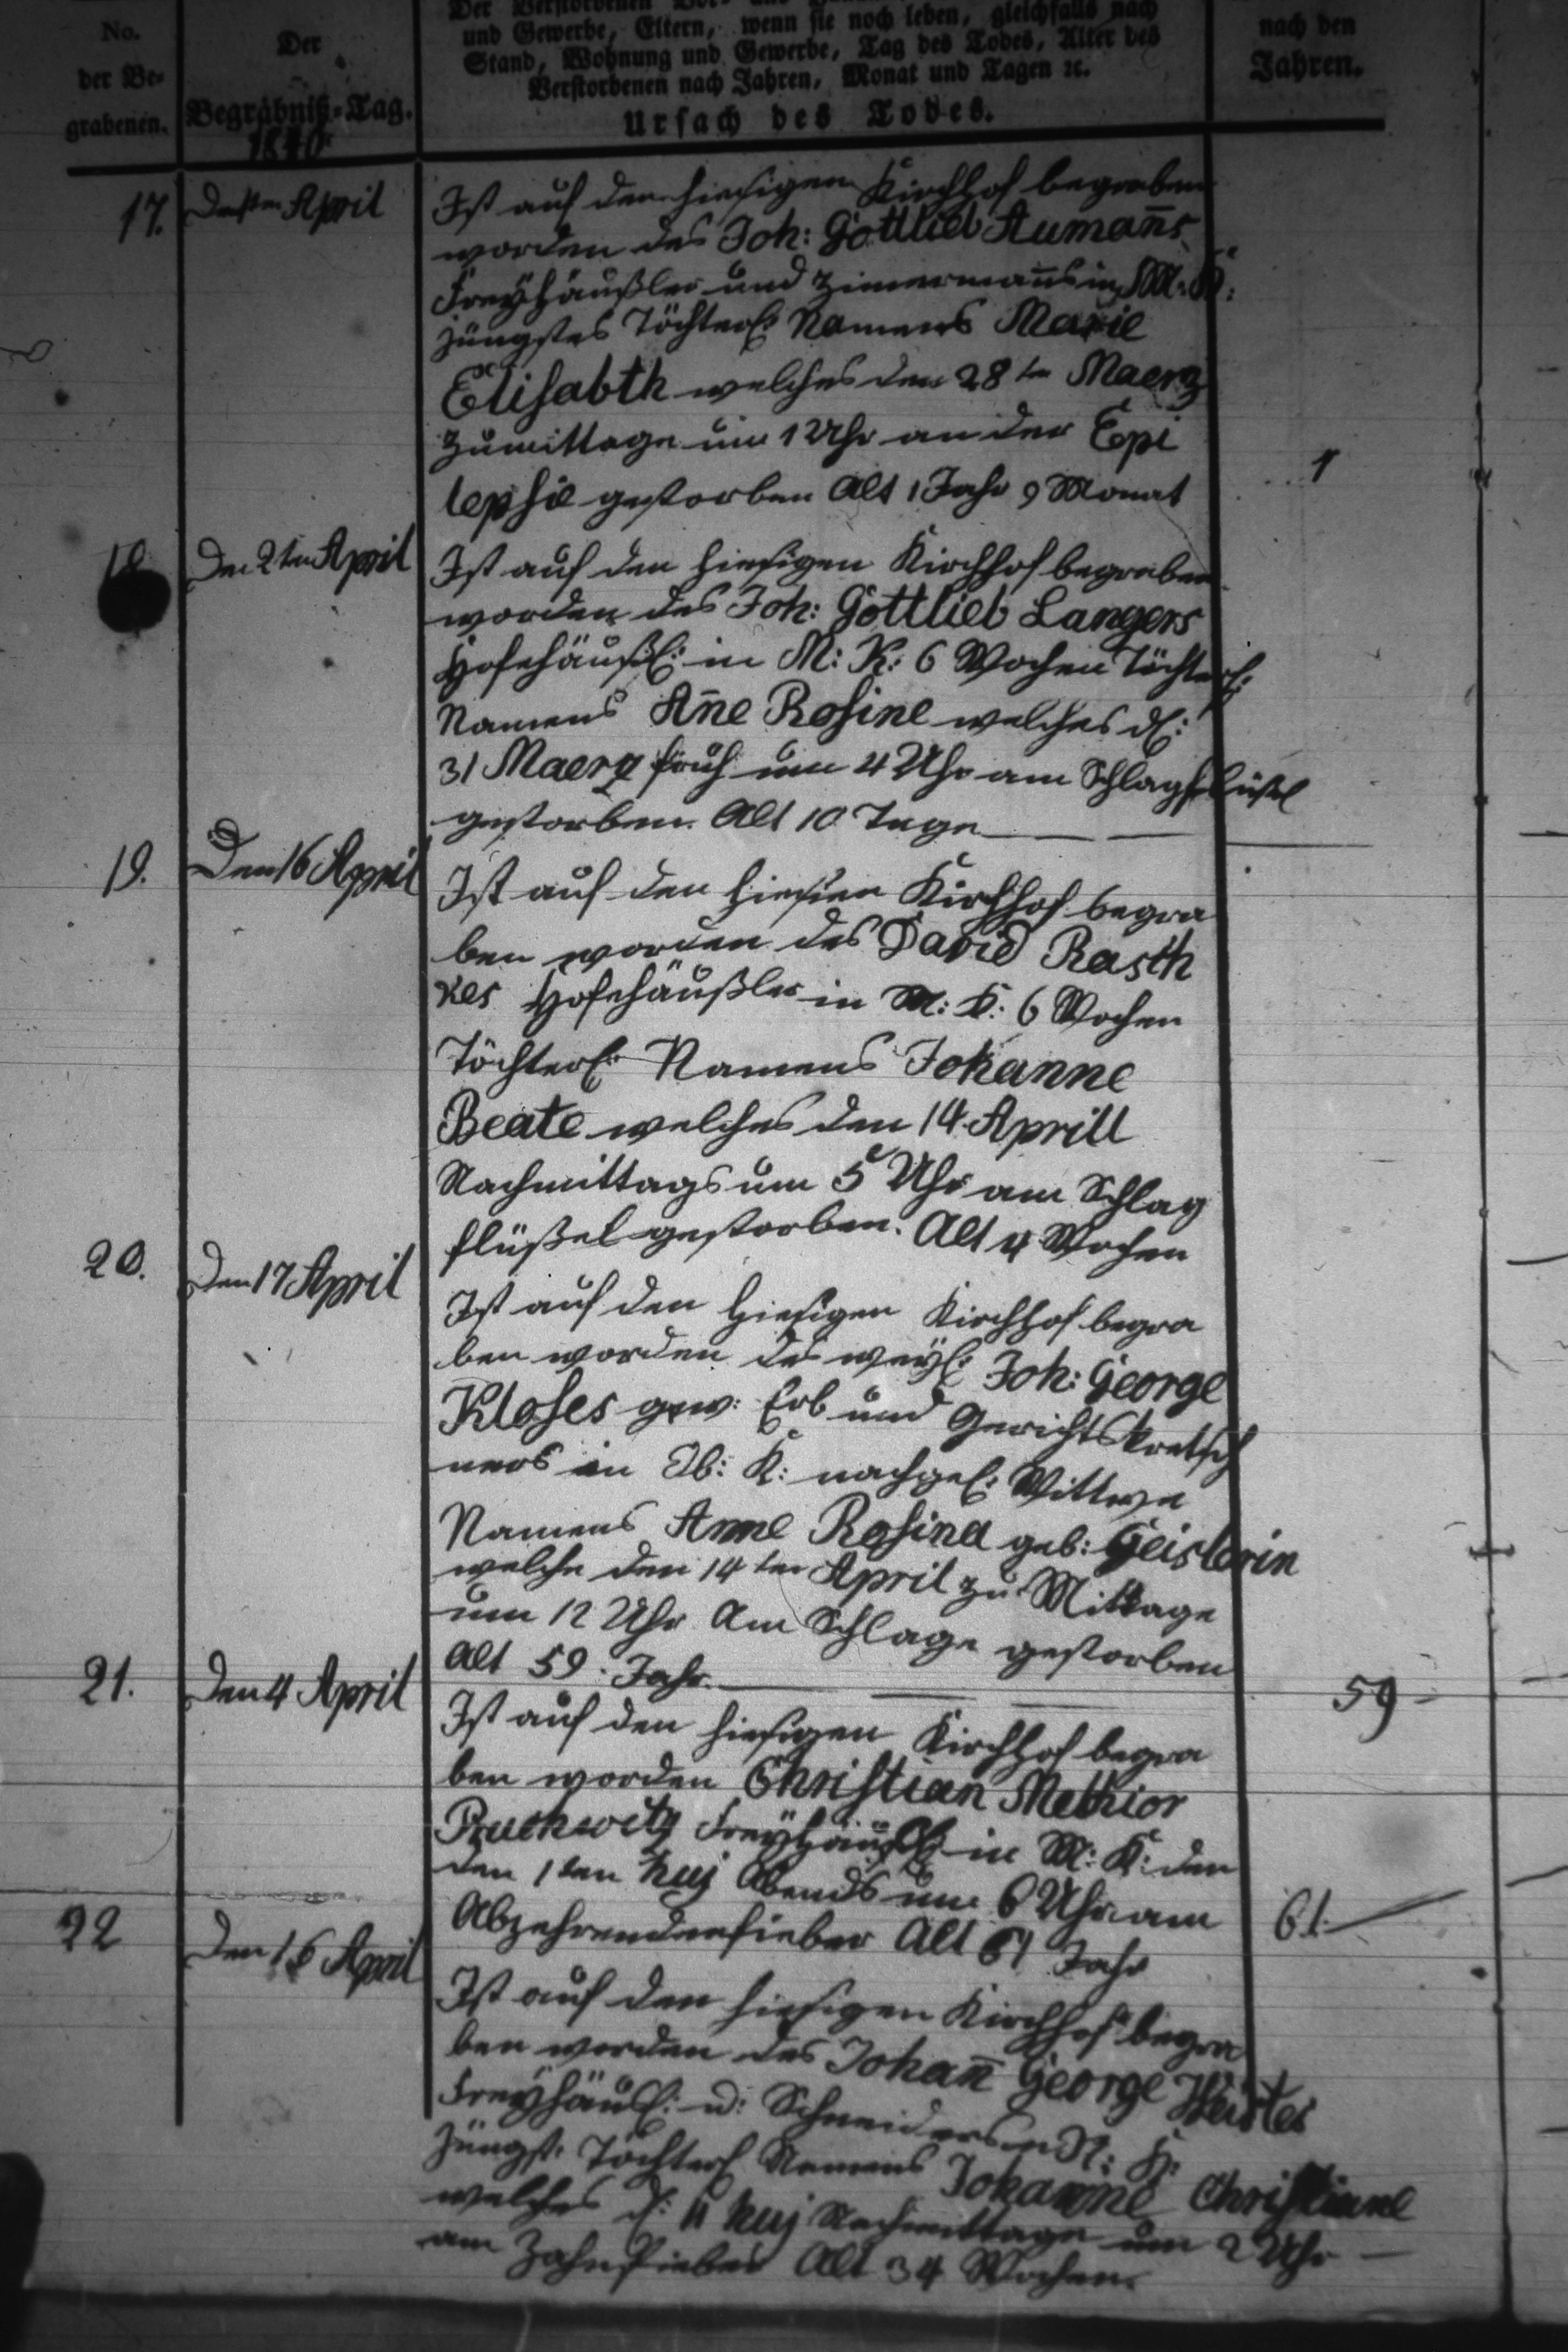 No.
der Be-
grabenen.
Der
Begräbniß-Tag.
1840
Der Verstorbenen Vor- und
und Gewerbe, Eltern, wenn sie noch leben, gleichfalls nach
Stand, Wohnung und Gewerbe, Tag des Todes, Alter des
Verstorbenen nach Jahren, Monat und Tagen ꝛc.
Ursach des Todes.
nach den
Jahren.
17.
April
Ist auf den hiesigen Kirchhof begraben
worden des Joh: Gottlieb Aumañs
Freyhäußler und Zimermañs in M: K:
jüngstes Töchterl: Namens Marie
Elisabth welches den 28ten Maerz
Zumittage um 1 Uhr an der Epi
lepsie gestorben Alt 1 Jahr 9 Monat
1
18.
Den 2ten April
Ist auf den hiesigen Kirchhof begraben
worden des Joh: Gottlieb Langers
Hofehäußl: in M: K: 6 Wochen Töchterl:
Namens Añe Rosine welches d:
31 Maerz früh um 4 Uhr am Schlagflüßel
gestorben. Alt 10 Tage
19.
Den 16 April
Ist auf den hiesien Kirchhof begra
ben worden des David Rasch
kes Hofehäußler in M: K: 6 Wochen
Töchterl: Namens Johanne
Beate welches den 14. Aprill
Nachmittags um 5 Uhr am Schlag
flüßel gestorben. Alt 4 Wochen
20.
Den 17 April
Ist auf den hiesigen Kirchhof begra
ben worden des weyl: Joh: George
Kloses gew: Erb und Gerichtskretsch
mers in Ob: K: nachgel: Wittwe
Namens Anne Rosina geb: Geislerin
welche den 14ten April zu Mittage
um 12 Uhr Am Schlage gestorben
Alt 59. Jahr.
59
21.
Den 4 April
Ist auf den hiesigen Kirchhof begra
ben worden Christian Melhior
Pruchwitz Freyhäußl: in M: K: den
den 1ten huj Abends um 6 Uhr am
Abzehrendenfieber Alt 61 Jahr
61.
22
Den 16 April
Ist auf den hiesigen Kirchhof begra
ben worden des Johañ George
Freyhäusl: u: Schneiders in N: K:
jüngst: Töchterl Namens Johanne Christiane
welches d: 11 huj Nachmittage um 2 Uhr
am Zahnfieber Alt 34 Wochen.